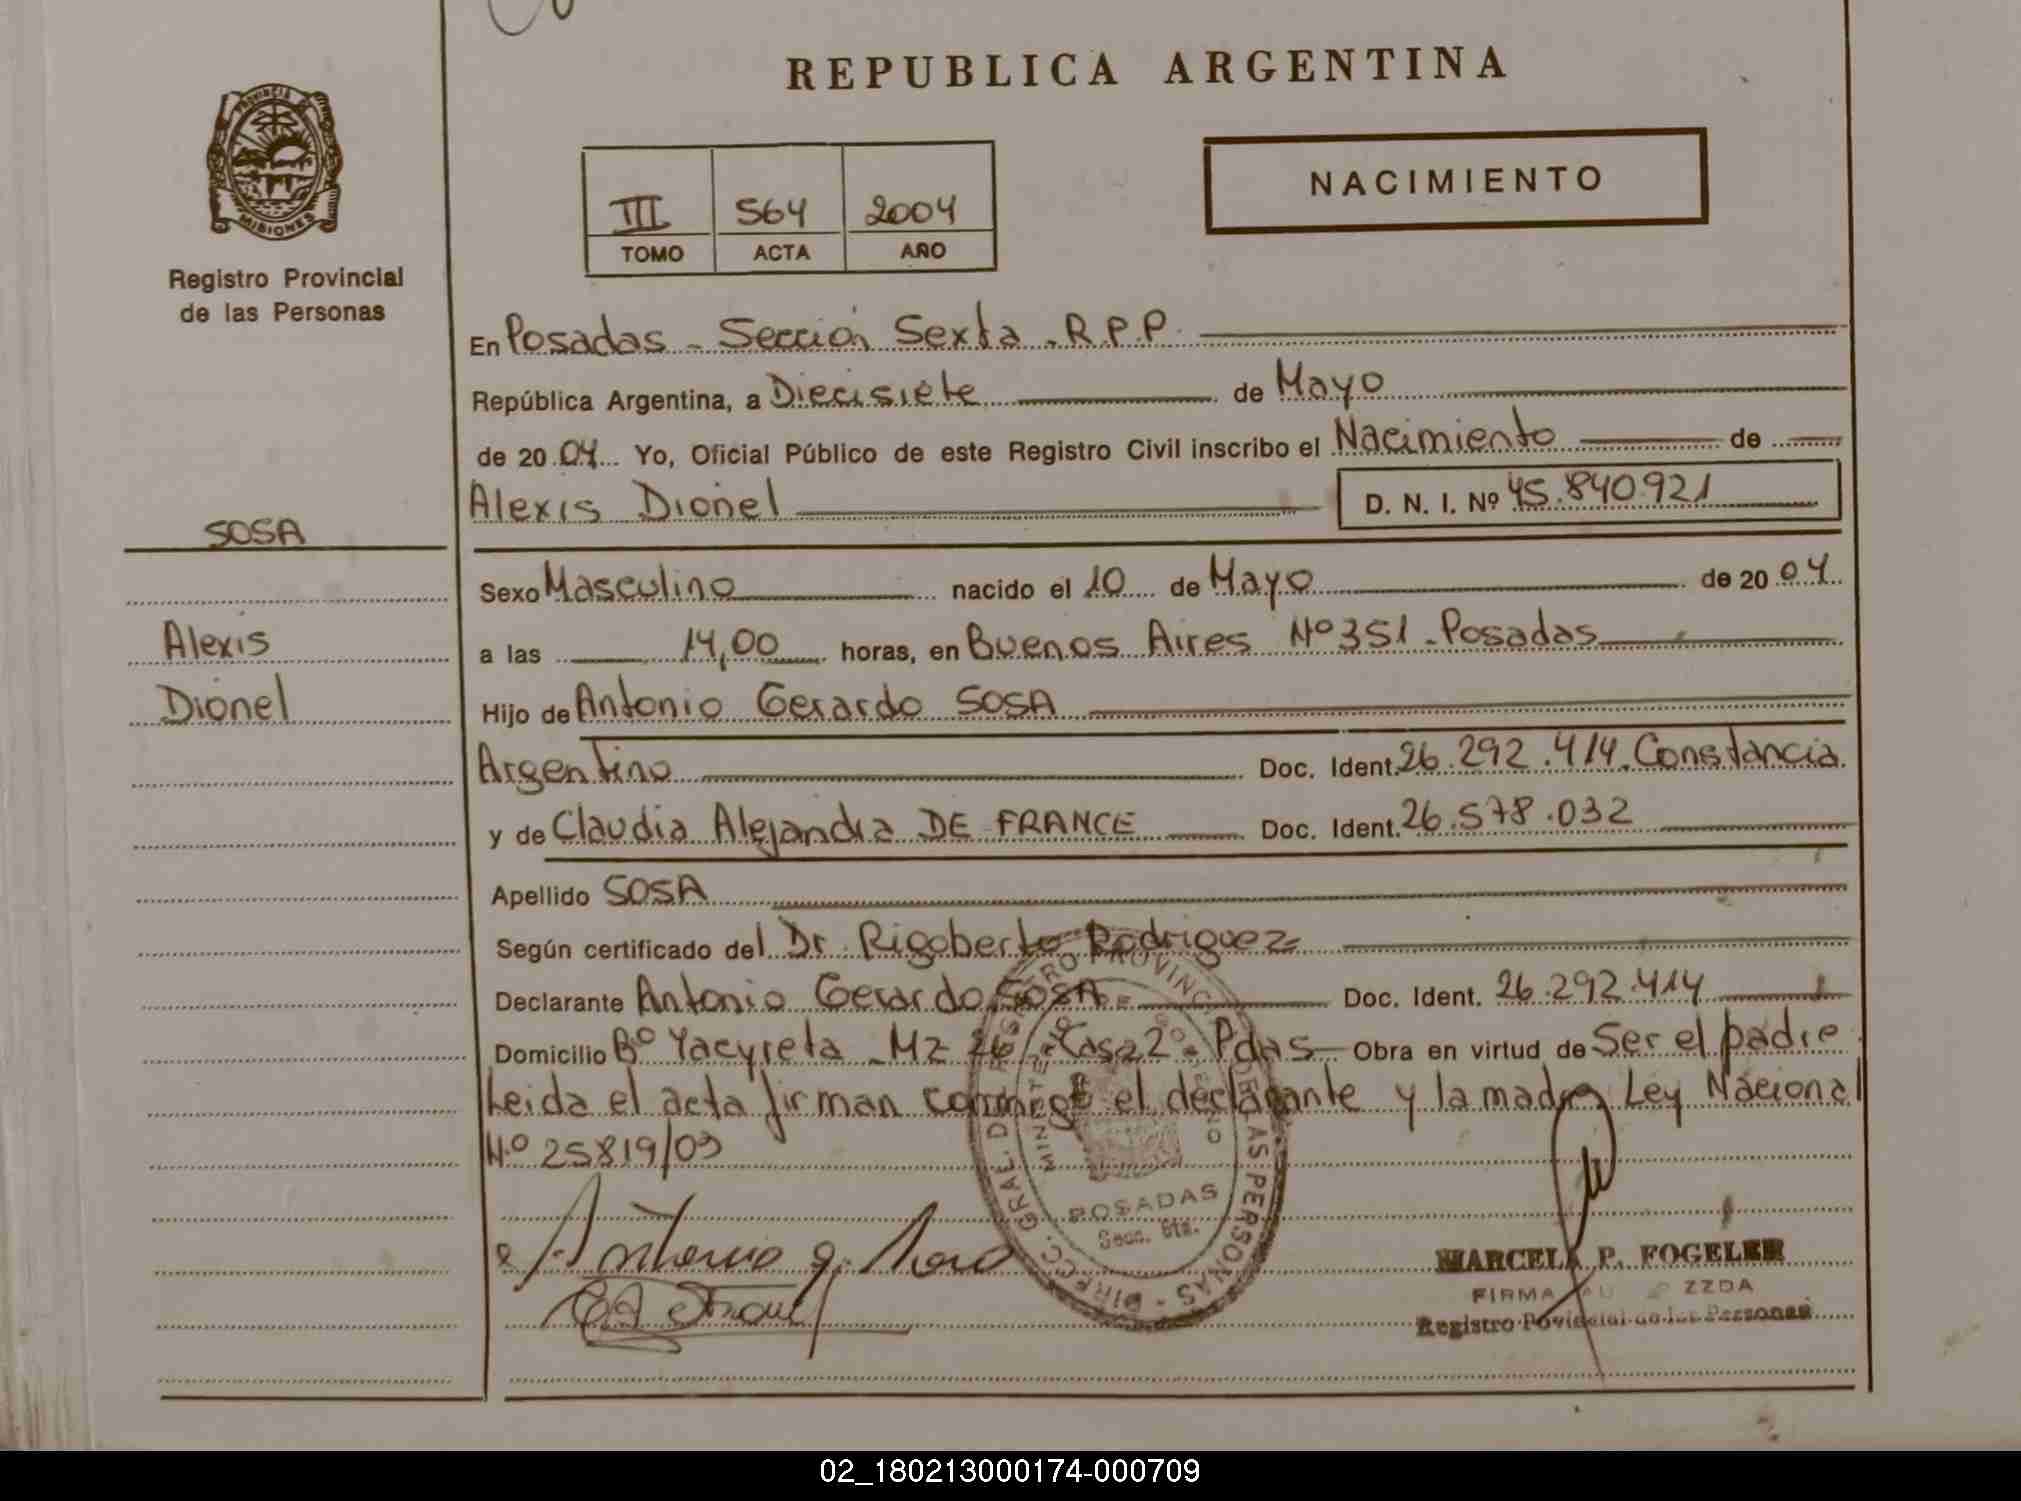 REPUBLICA ARGENTINA
PROVINCIA DE
MISIONES
Registro Provincial
de las Personas
III 564 2004
TOMO ACTA AÑO
NACIMIENTO
En Posadas - Sección Sexta - R.P.P.
República Argentina, a Diecisiete de Mayo
de 2004 Yo, Oficial Público de este Registro Civil inscribo el Nacimiento de
Alexis Dionel D. N. I. Nº 45.840.921
SOSA
Alexis
Dionel
Sexo Masculino nacido el 10 de Mayo de 2004
a las 14,00 horas, en Buenos Aires Nº 351 - Posadas
Hijo de Antonio Gerardo SOSA
Argentino Doc. Ident. 26.292.414. Constancia
y de Claudia Alejandra DE FRANCE Doc. Ident. 26.578.032
Apellido SOSA
Según certificado del Dr. Rigoberto Rodriguez
Declarante Antonio Gerardo SOSA Doc. Ident. 26.292.414
Domicilio Bº Yacyreta - Mz 26 - Casa 2 - Pdas - Obra en virtud de Ser el padre
Leida el acta firman conmigo el declarante y la madre, Ley Nacional
N.º 25819/03
DIRECC. GRAL. DE REGISTRO PROVINCIAL DE LAS PERSONAS
MINISTERIO DE GOBIERNO
POSADAS
Secc. 6ta.
MARCELA P. FOGELER
FIRMA
Registro Provincial de las Personas
02_180213000174-000709